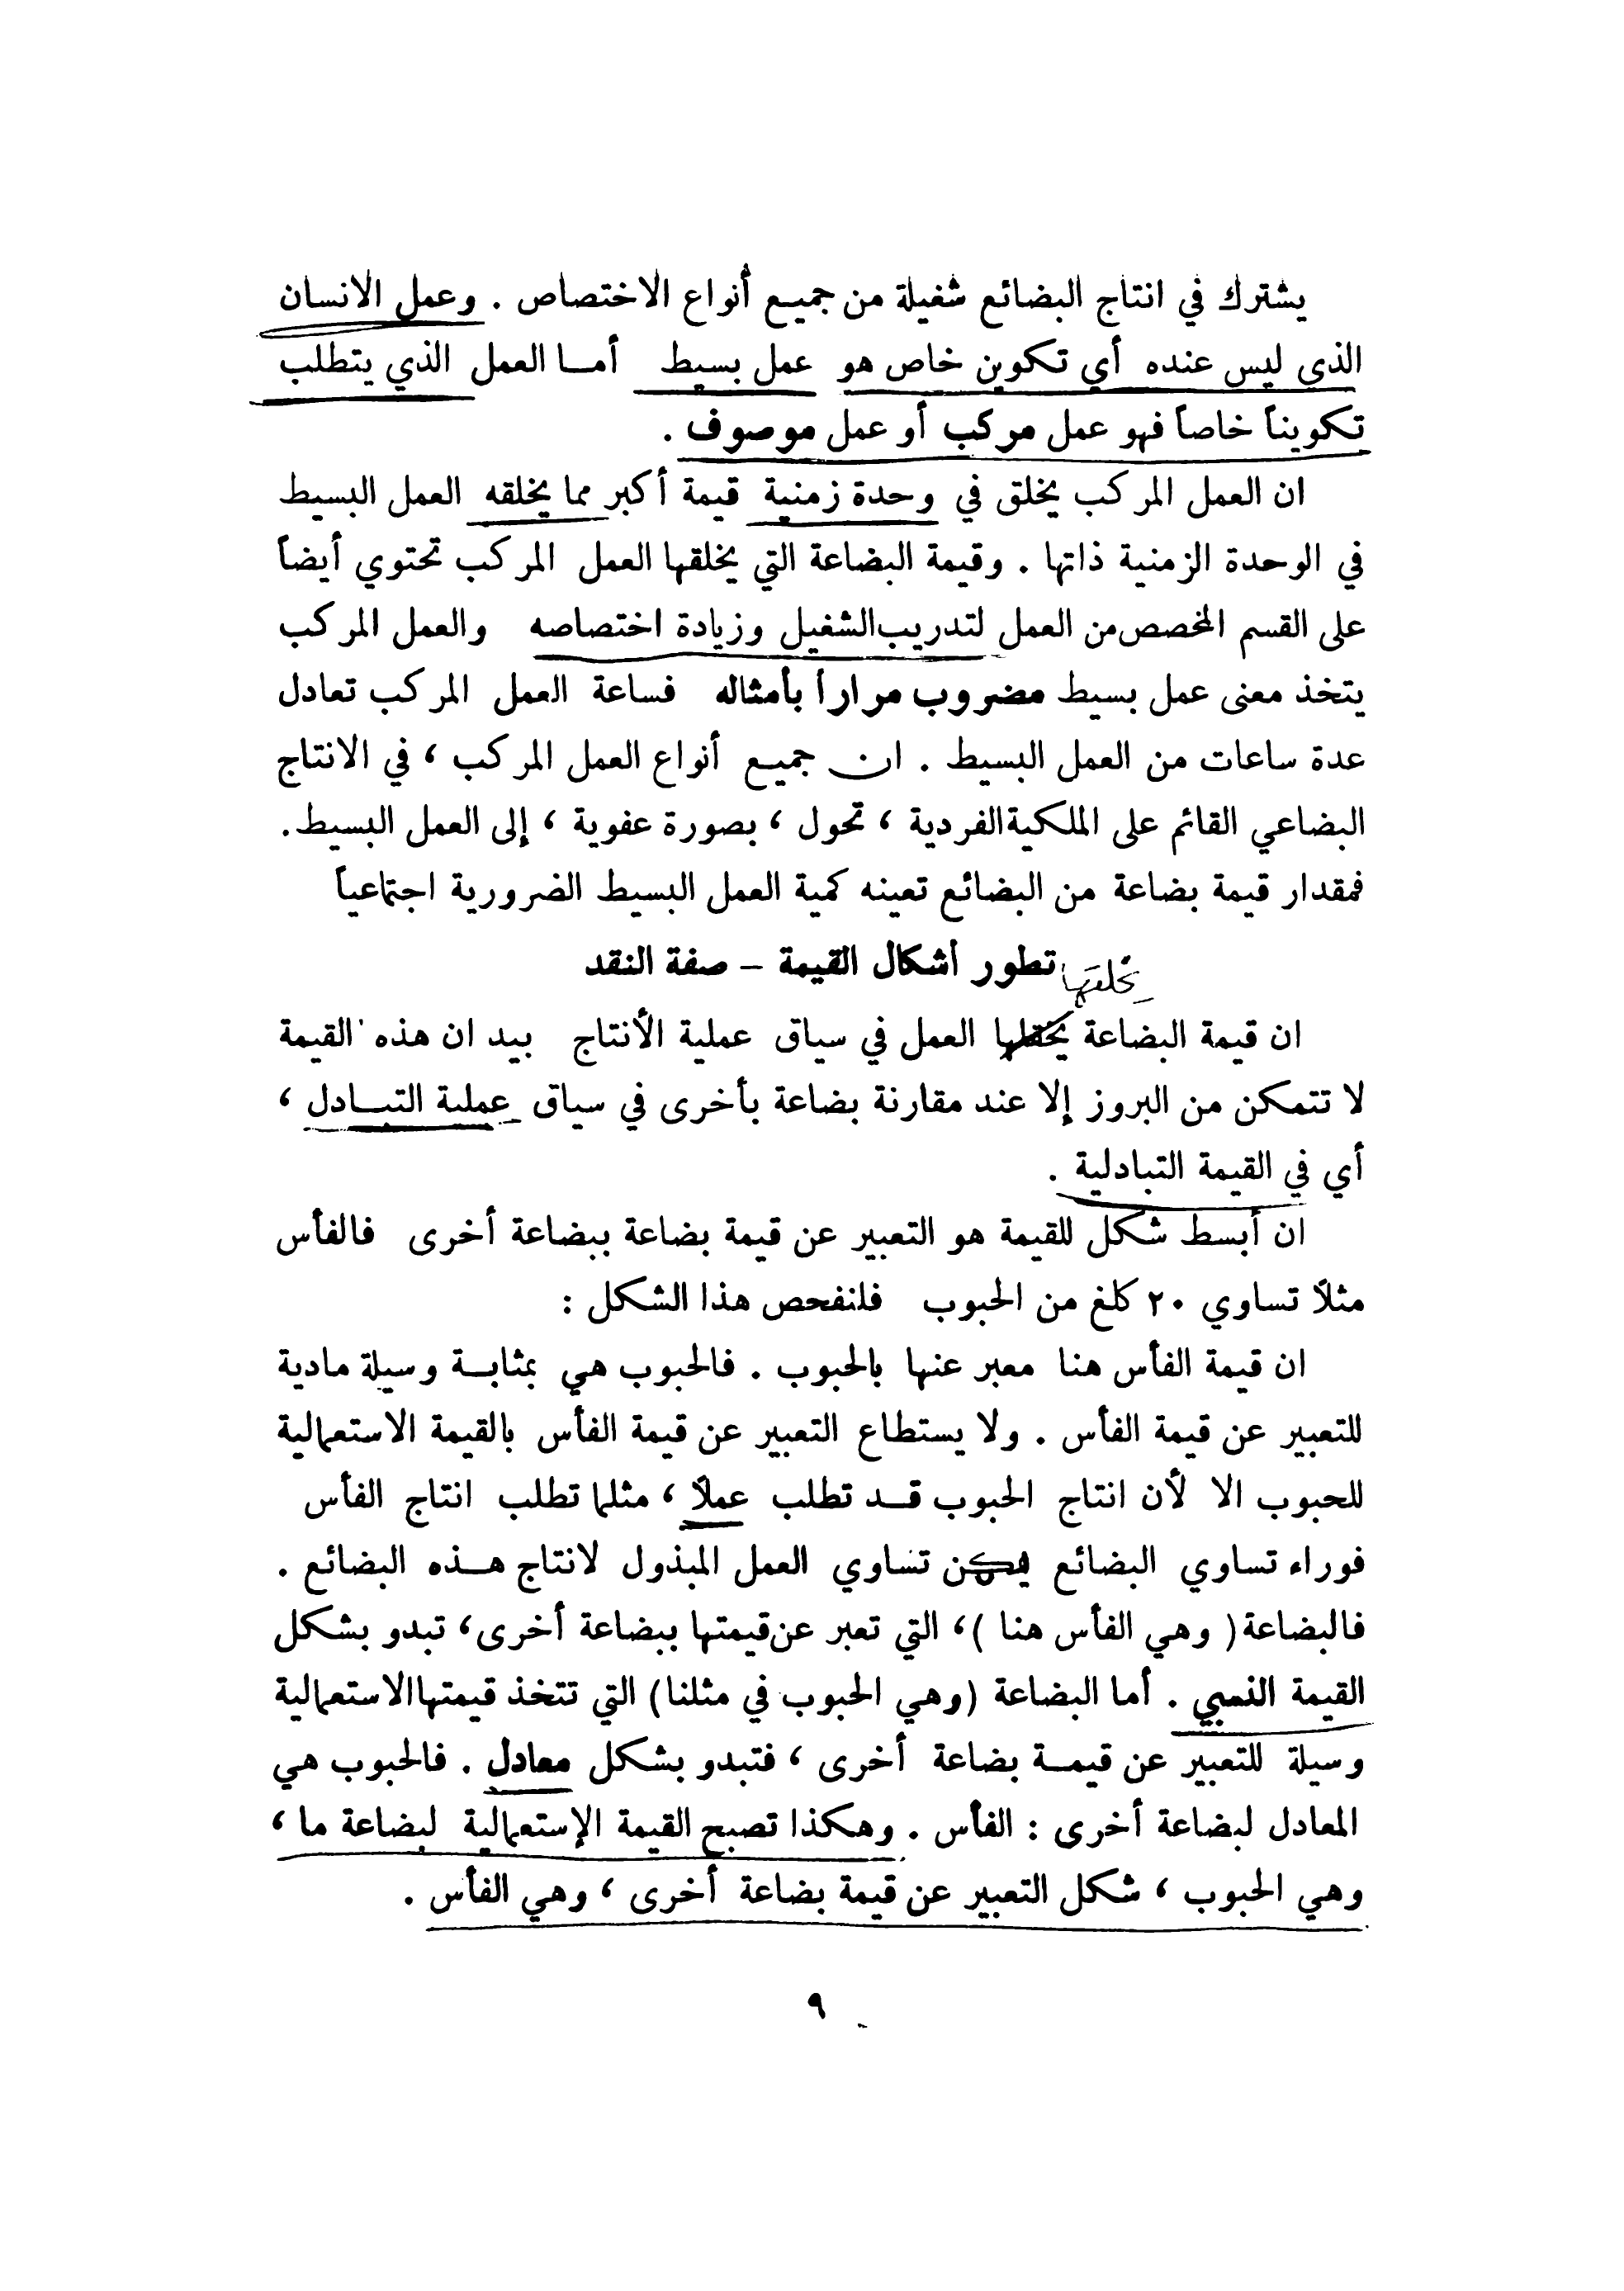 يشترك في انتاج البضائع شغيلة من جميع أنواع الاختصاص . وعمل الانسان
الذي ليس عنده أي تكوين خاص هو عمل بسيط أما العمل الذي يتطلب
تكويناً خاصاً فهو عمل مركب أو عمل موصوف .
ان العمل المركب يخلق في وحدة زمنية قيمة أكبر مما يخلقه العمل البسيط
في الوحدة الزمنية ذاتها . وقيمة البضاعة التي يخلقها العمل المركب تحتوي أيضاً
على القسم المخصص من العمل لتدريب الشغيل وزيادة اختصاصه والعمل المركب
يتخذ معنى عمل بسيط مضروب مراراً بأمثاله فساعة العمل المركب تعادل
عدة ساعات من العمل البسيط . ان جميع أنواع العمل المركب ، في الانتاج
البضاعي القائم على الملكية الفردية ، تحول ، بصورة عفوية ، إلى العمل البسيط.
فمقدار قيمة بضاعة من البضائع تعينه كمية العمل البسيط الضرورية اجتماعياً
تطور أشكال القيمة – صفة النقد
يخلقها
ان قيمة البضاعة العمل في سياق عملية الأنتاج بيد ان هذه القيمة
لا تتمكن من البروز إلا عند مقارنة بضاعة بأخرى في سياق عملية التبادل ،
أي في القيمة التبادلية .
ان أبسط شكل للقيمة هو التعبير عن قيمة بضاعة ببضاعة أخرى فالفأس
مثلاً تساوي ٢٠ كلغ من الحبوب فلنفحص هذا الشكل :
ان قيمة الفأس هنا معبر عنها بالحبوب . فالحبوب هي بمثابة وسيلة مادية
للتعبير عن قيمة الفأس . ولا يستطاع التعبير عن قيمة الفأس بالقيمة الاستعمالية
للحبوب الا لأن انتاج الحبوب قد تطلب عملاً ، مثلما تطلب انتاج الفأس
فوراء تساوي البضائع يكمن تساوي العمل المبذول لانتاج هذه البضائع .
فالبضاعة ( وهي الفأس هنا )، التي تعبر عن قيمتها ببضاعة أخرى، تبدو بشكل
القيمة النسبي . أما البضاعة (وهي الحبوب في مثلنا) التي تتخذ قيمتها الاستعمالية
وسيلة للتعبير عن قيمة بضاعة أخرى ، فتبدو بشكل معادل . فالحبوب هي
المعادل لبضاعة أخرى : الفأس . وهكذا تصبح القيمة الإستعمالية لبضاعة ما ،
وهي الحبوب ، شكل التعبير عن قيمة بضاعة أخرى ، وهي الفأس .
٩